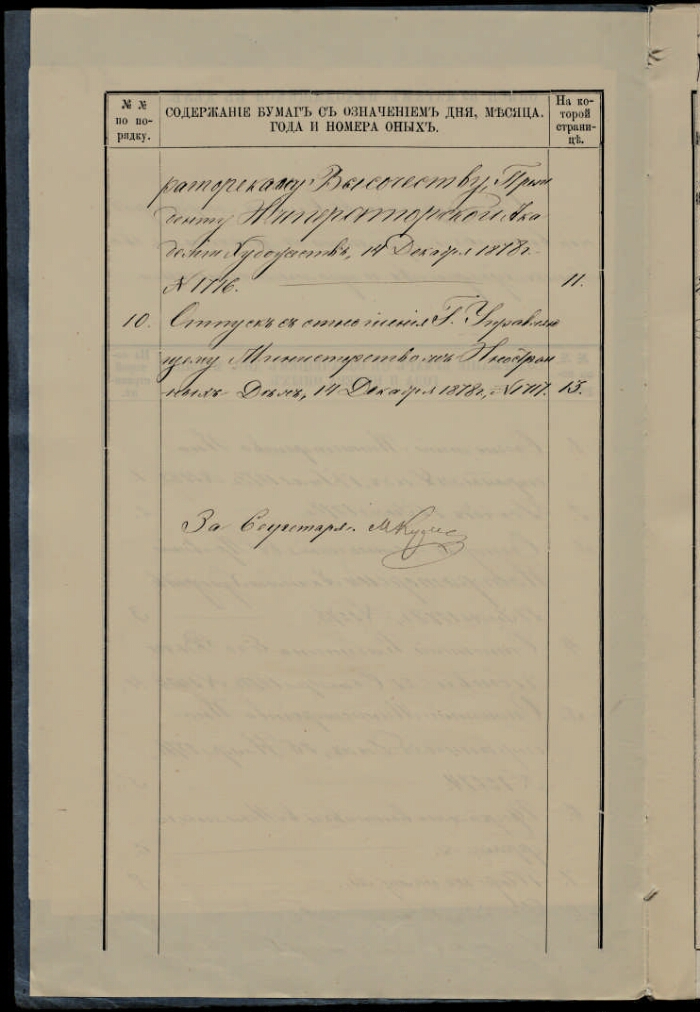 № №
по по-
рядку.
СОДЕРЖАНІЕ БУМАГЪ СЪ ОЗНАЧЕНІЕМЪ ДНЯ, МѢСЯЦА.
ГОДА И НОМЕРА ОНЫХЪ.
На ко-
торой
страни-
цѣ.
раторскому Высочеству, Прези
денту Императорской Ака
деміи Художествъ, 14 Декабря 1878 г.
№ 1716. 11.
10. Отпускъ съ отношенія Г. Управляю
щему Министерствомъ Иностран
ныхъ Дѣлъ, 14 Декабря 1878 г., № 1717. 13.
За Секретаря.